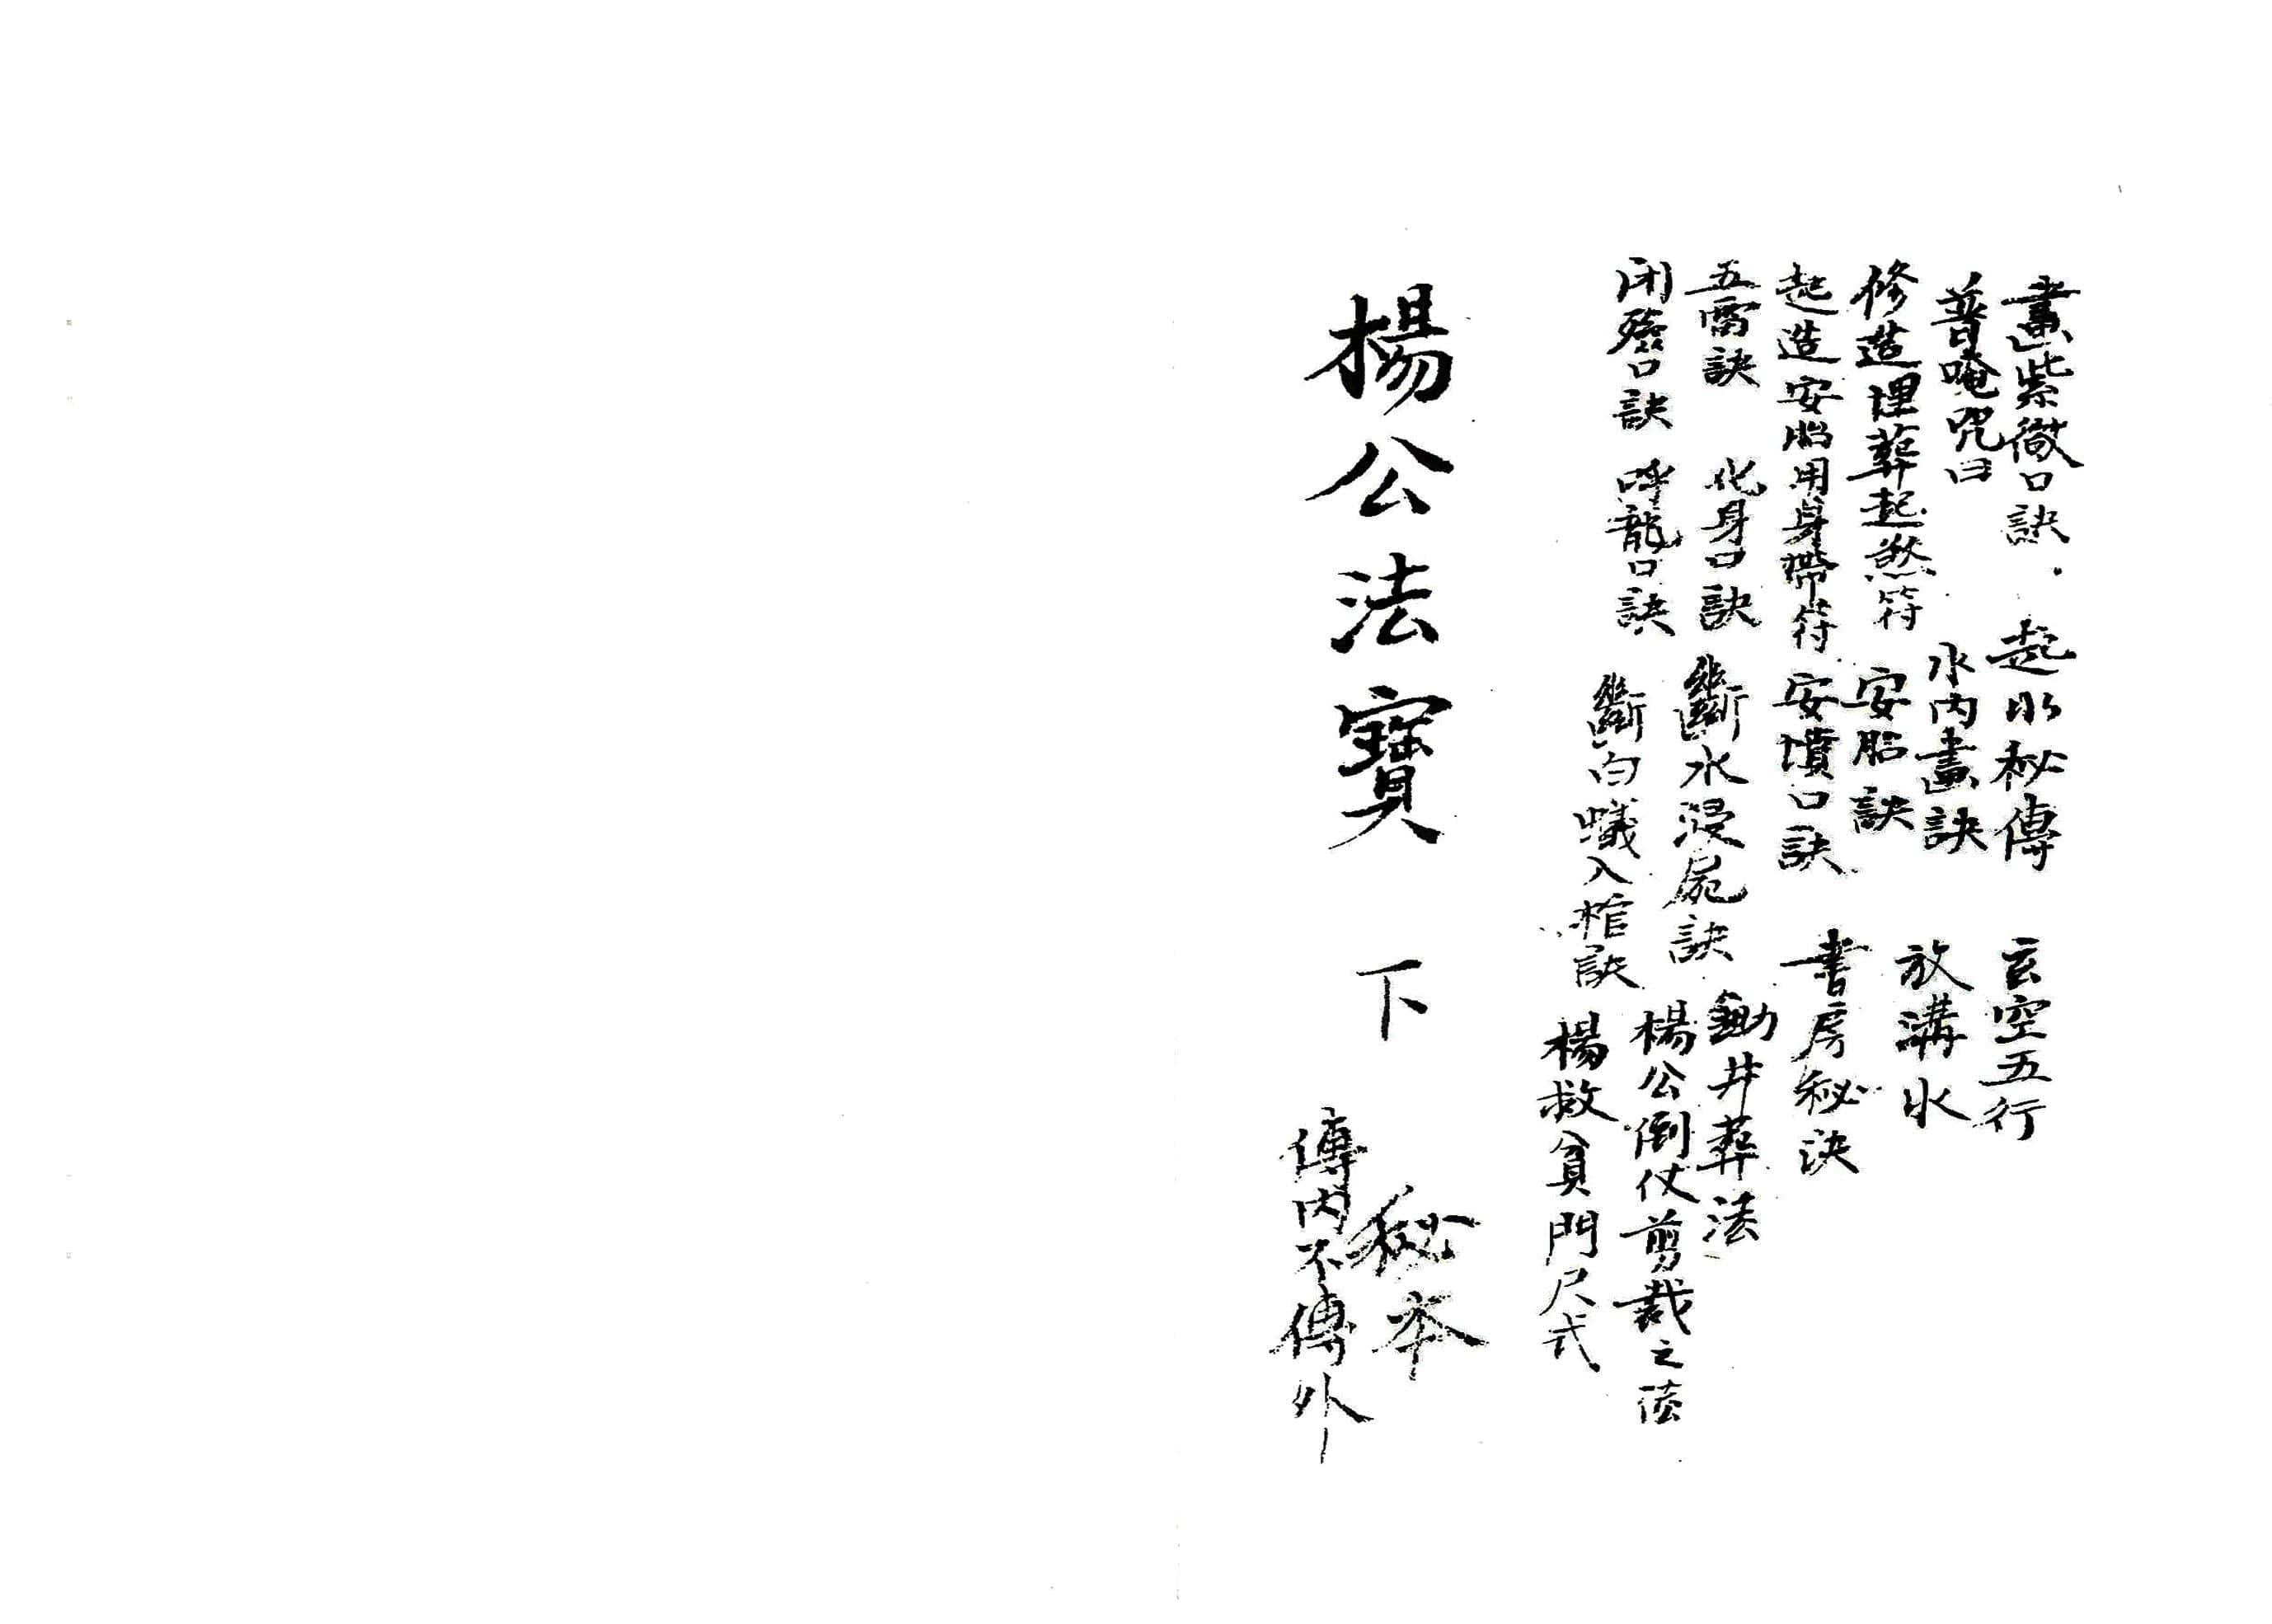 畫紫微口訣 起水秘傳 玄空五行
普唵咒曰 水內畫訣 放溝水
修造埋葬起煞符 安胎訣
起造安胎用身帶符 安墳口訣 書房秘决
五雷訣 化身口訣 斷水浸屍訣 鋤井葬法
閉殮口訣 呼龍口訣 斷白蟻入棺訣 楊公倒仗剪裁之法
楊救貧門尺式
楊公法寶 下
秘本
傳內不傳外